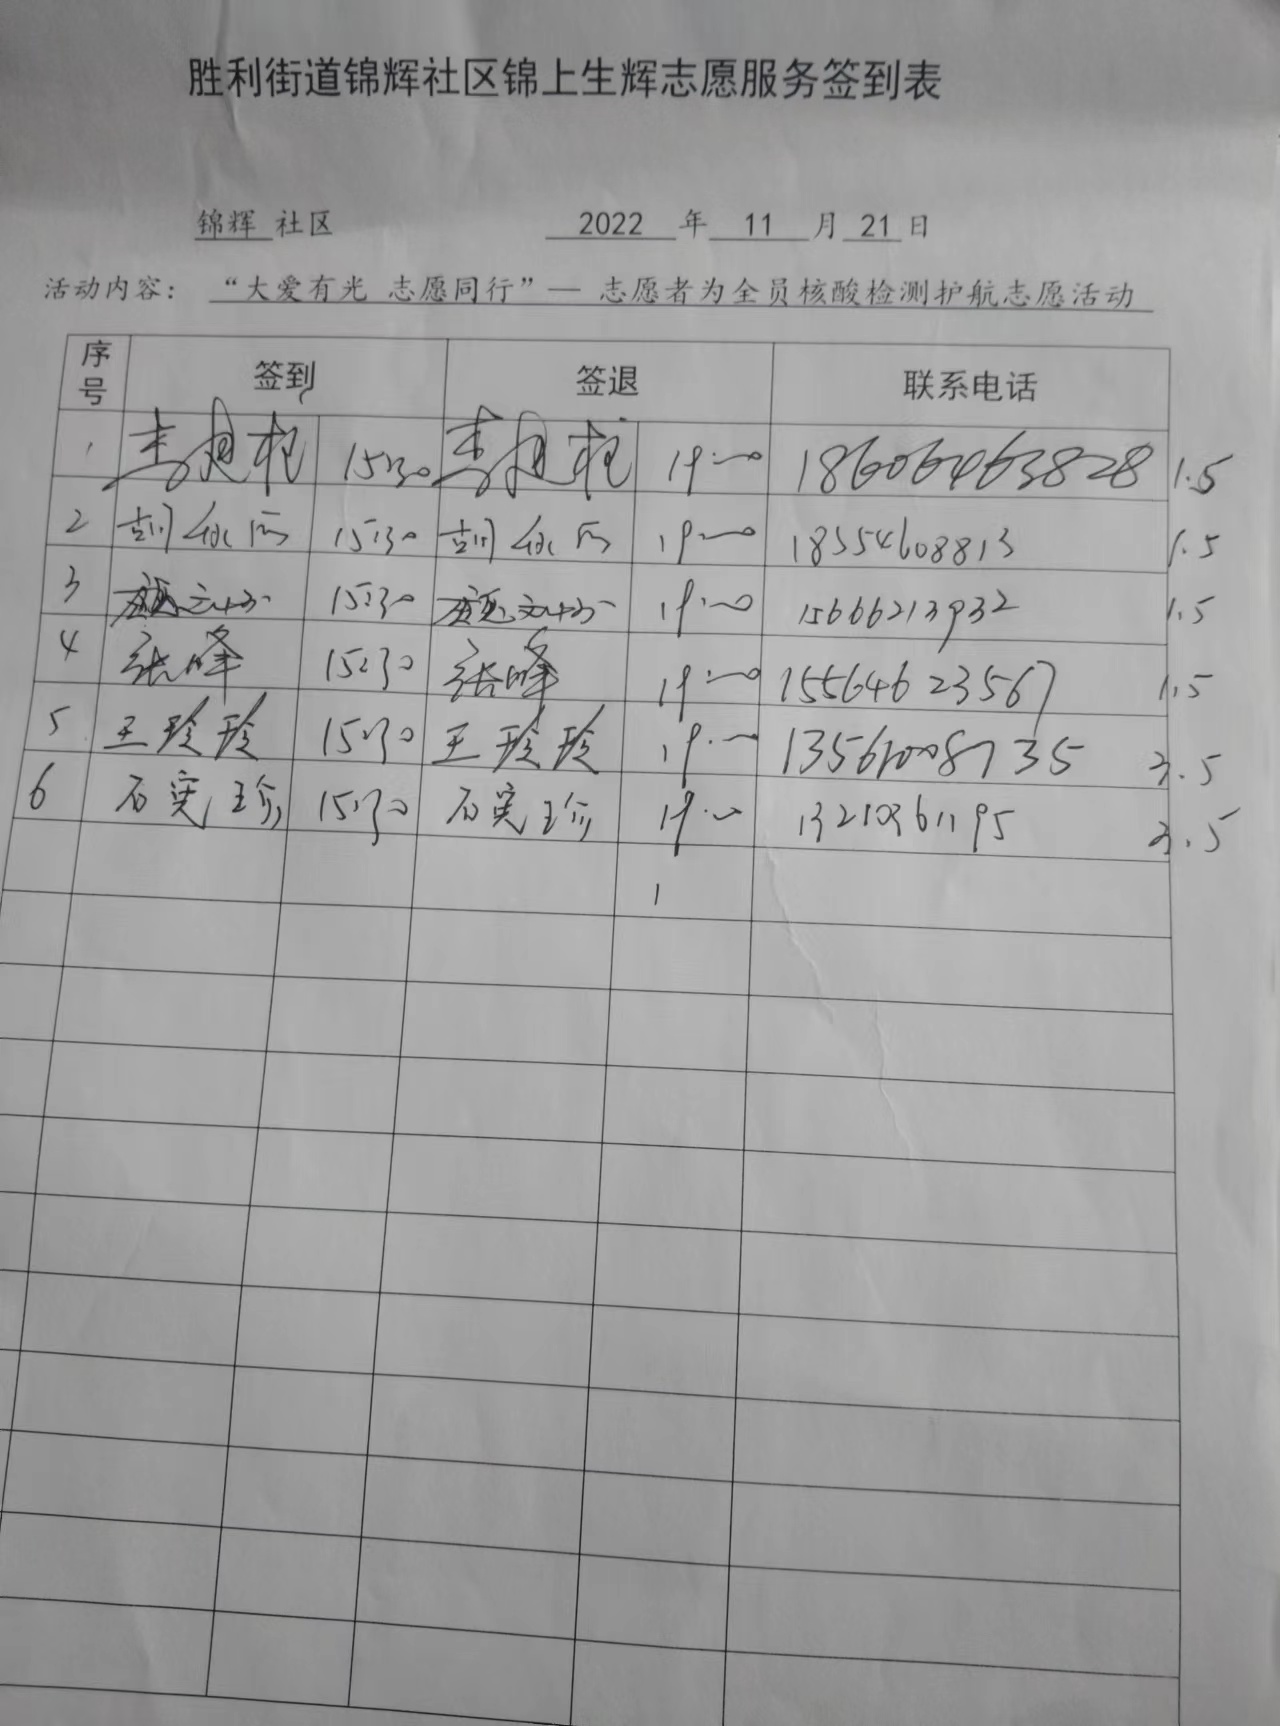 胜利街道锦辉社区锦上生辉志愿服务签到表
锦辉 社区 2022 年 11 月 21 日
活动内容: “大爱有光 志愿同行”— 志愿者为全员核酸检测护航志愿活动
序号 签到 签退 联系电话
1 15:30 19:00 18606463828 1.5
2 胡 15:30 胡 19:00 18554608813 1.5
3 颜文 15:30 颜文 19:00 15666213932 1.5
4 张峰 15:30 张峰 19:00 15564623567 1.5
5 王玲玲 15:30 王玲玲 19:00 13561008735 3.5
6 石宪珍 15:30 石宪珍 19:00 13210361195 3.5